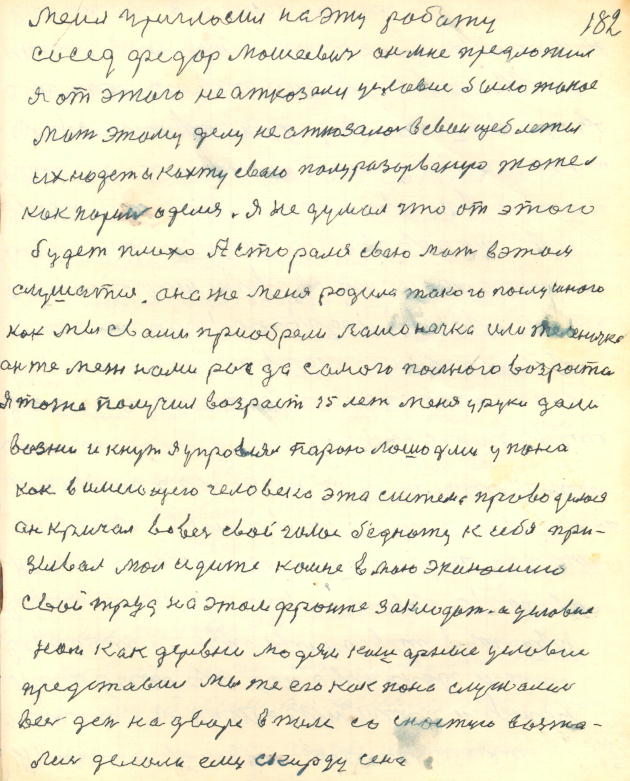 меня пригласил на эту работу 182
сосед федор мосеевич он мне предложил
я от этого не атказали условие было такое
мат этому делу не атказала в сваи ще б леты
их надеты кахту сваю полуразорваную тоже
как парня аделя. Я не думал что от этого
будет плохо Я старался сваю мат в этом
слушатся. она же меня родила такого послушного
как мы с вами приобрели лашоначка или теленичка
ан те меж нами рас да самого полного возроста
Я тоже получил возраст 15 лет меня у руки дали
возжи и кнут я упровлял парою лошодуми у пана
как в имеющего человека эта система проводелася
ан кричал во вес свой голос бедноту к себя при-
зывал мол идите комне в маю эканомию
свой труд на этом фронте закладат. а условие
нам как деревни людям кашарные условие
представил мы же его как пона слушали
вес ден на дваре в поле со снастию возна-
лис делали ему скирду сена